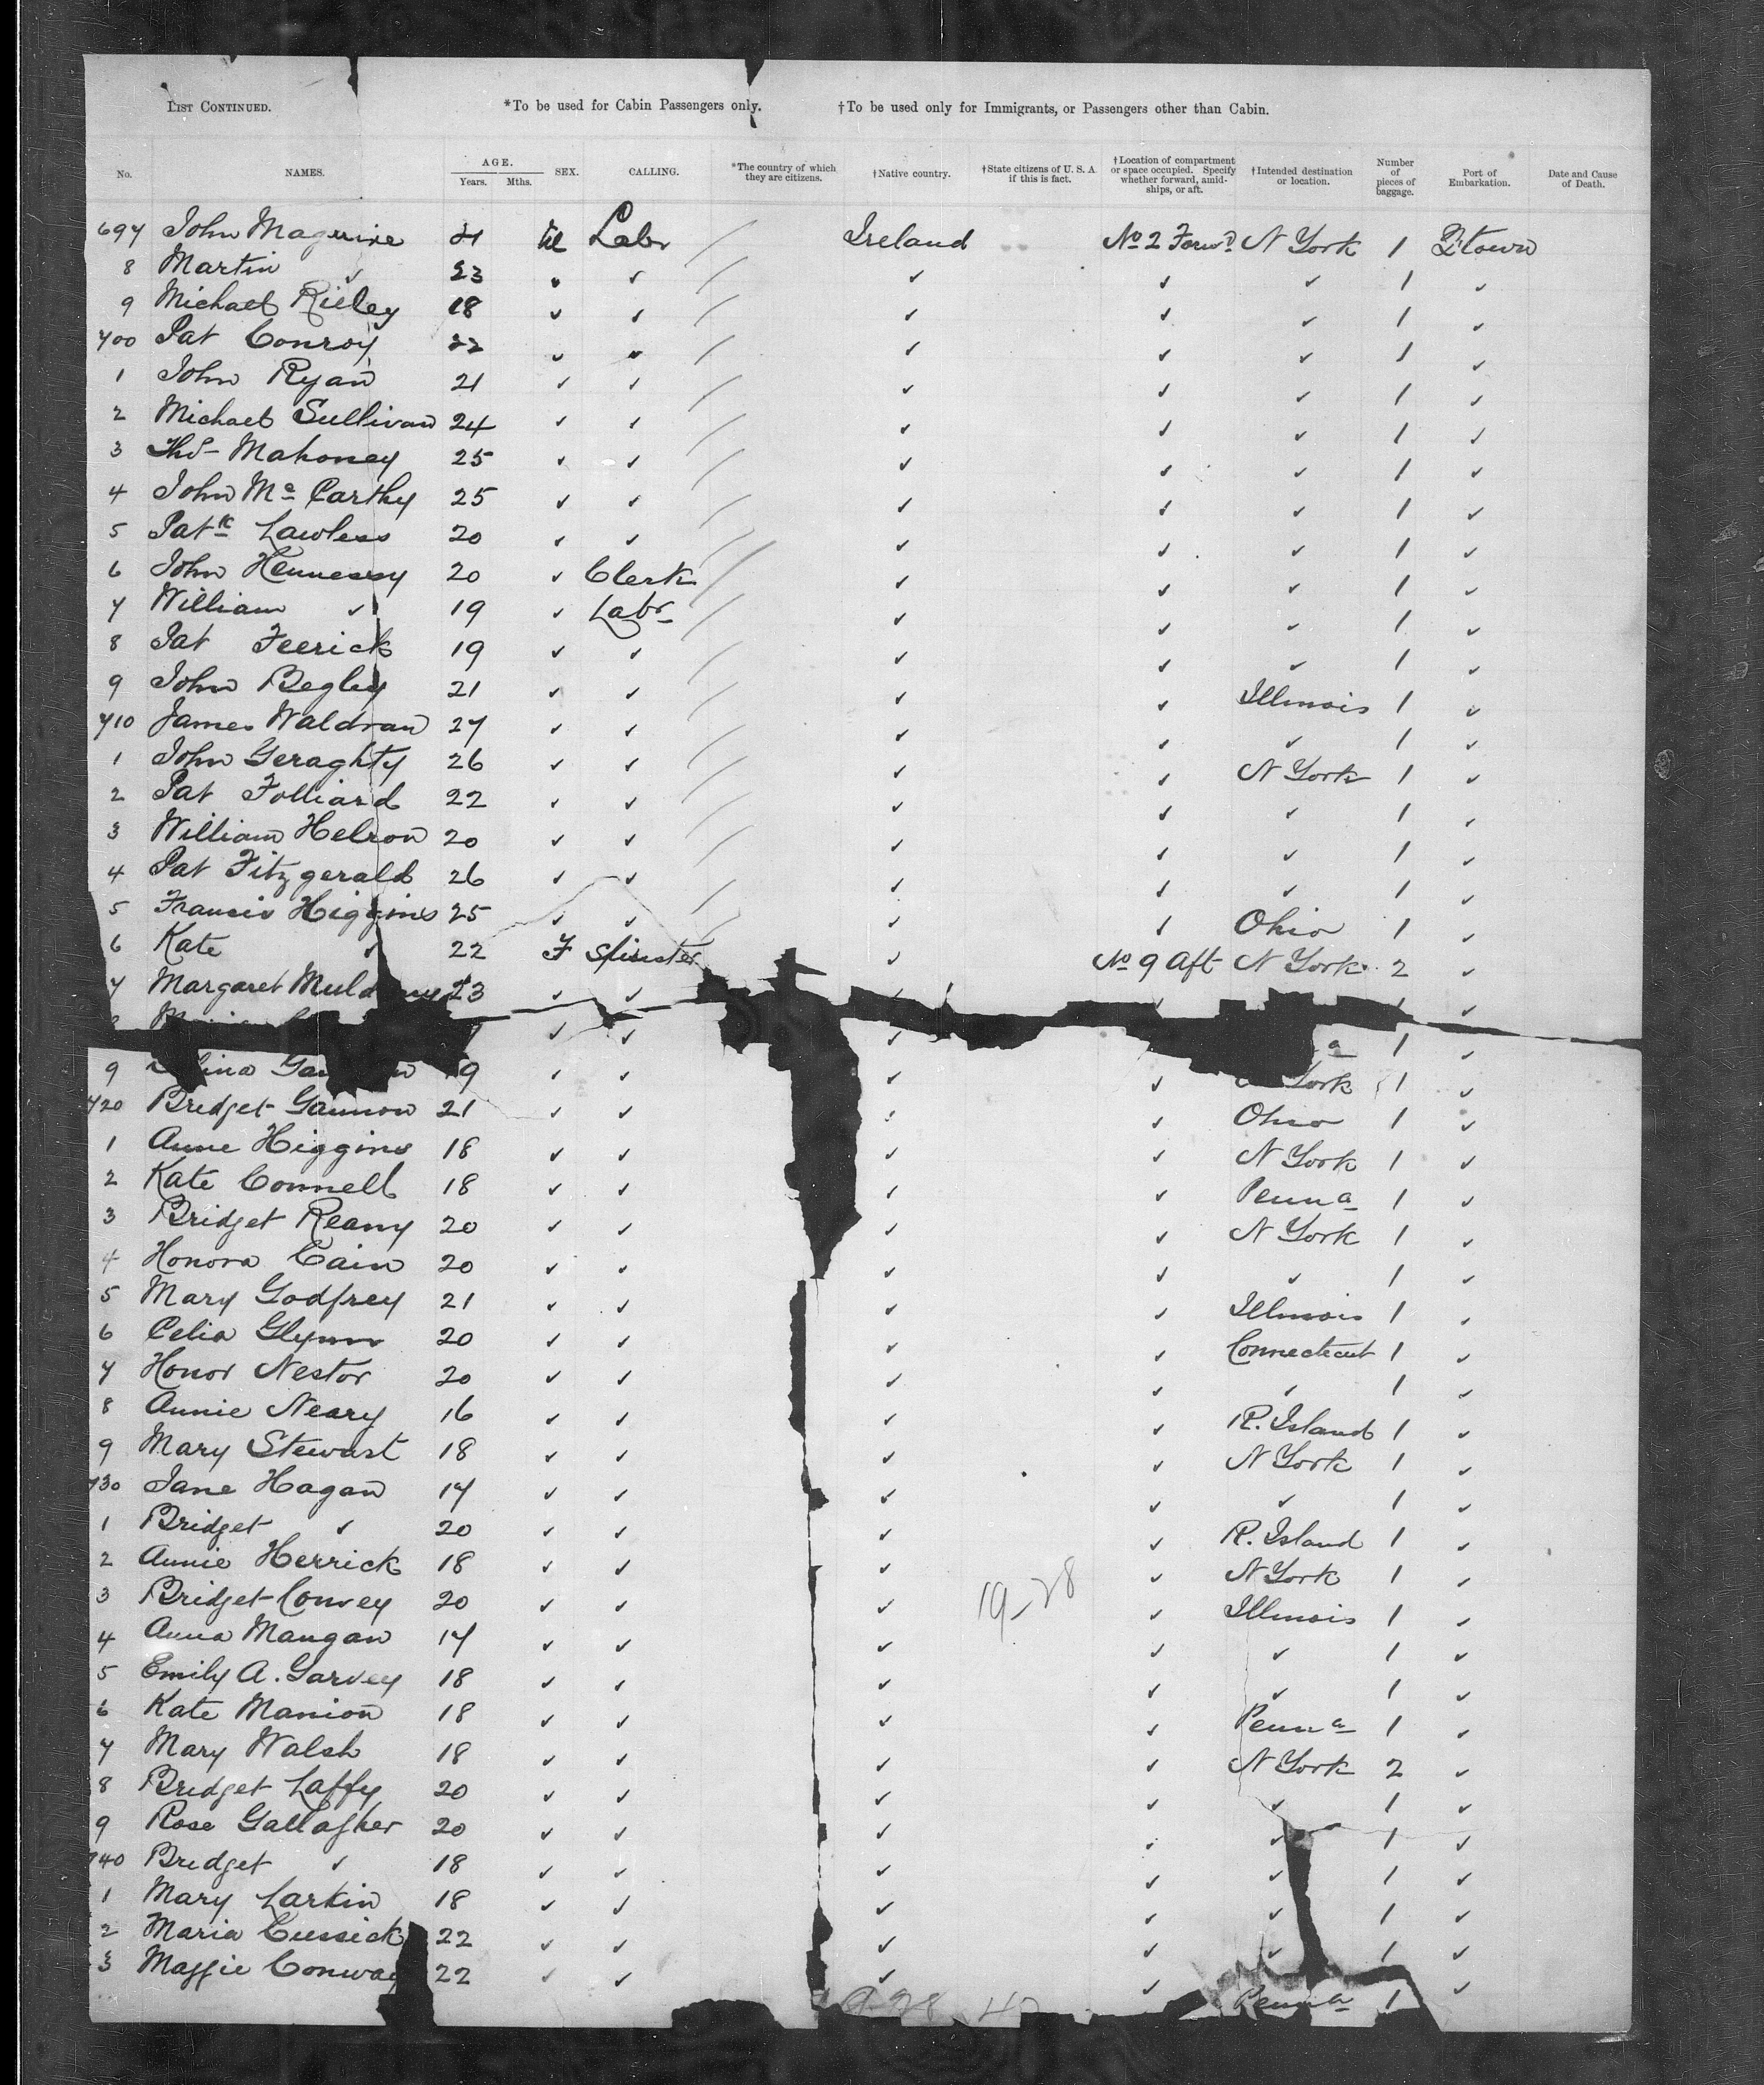 LIST CONTINUED. *To be used for Cabin Passengers only. †To be used only for Immigrants, or Passengers other than Cabin.
No. NAMES. AGE. Years. Mths. SEX. CALLING. *The country of which they are citizens. †Native country. †State citizens of U. S. A if this is fact. †Location of compartment or space occupied. Specify whether forward, amidships, or aft. †Intended destination or location. Number of pieces of baggage. Port of Embarkation. Date and Cause of Death.
697 John Maguire 21 M Labr Ireland No 2 Forwd N York 1 Qtown
8 Martin ✓ 23 ✓ ✓ ✓ ✓ ✓ 1 ✓
9 Michael Rieley 18 ✓ ✓ ✓ ✓ ✓ 1 ✓
700 Pat Conroy 22 ✓ ✓ ✓ ✓ ✓ 1 ✓
1 John Ryan 21 ✓ ✓ ✓ ✓ ✓ 1 ✓
2 Michael Sullivan 24 ✓ ✓ ✓ ✓ ✓ 1 ✓
3 Thos Mahoney 25 ✓ ✓ ✓ ✓ ✓ 1 ✓
4 John Mc Carthy 25 ✓ ✓ ✓ ✓ ✓ 1 ✓
5 Patk Lawless 20 ✓ ✓ ✓ ✓ ✓ 1 ✓
6 John Hennessy 20 ✓ Clerk ✓ ✓ ✓ 1 ✓
7 William ✓ 19 ✓ Labr ✓ ✓ ✓ 1 ✓
8 Pat Feerick 19 ✓ ✓ ✓ ✓ ✓ 1 ✓
9 John Begley 21 ✓ ✓ ✓ ✓ Illinois 1 ✓
710 James Waldran 27 ✓ ✓ ✓ ✓ ✓ 1 ✓
1 John Geraghty 26 ✓ ✓ ✓ ✓ N York 1 ✓
2 Pat Folliard 22 ✓ ✓ ✓ ✓ ✓ 1 ✓
3 William Helron 20 ✓ ✓ ✓ ✓ ✓ 1 ✓
4 Pat Fitzgerald 26 ✓ ✓ ✓ ✓ ✓ 1 ✓
5 Francis Higgins 25 ✓ ✓ ✓ ✓ Ohio 1 ✓
6 Kate ✓ 22 F Spinster ✓ No 9 Aft N York 2 ✓
7 Margaret 23 ✓ ✓ ✓ ✓ 1 ✓
✓ ✓ ✓ 1 ✓
9 ✓ ✓ ✓ ✓ York 1 ✓
720 Bridget Gannon 21 ✓ ✓ ✓ ✓ Ohio 1 ✓
1 Anne Higgins 18 ✓ ✓ ✓ ✓ N York 1 ✓
2 Kate Connell 18 ✓ ✓ ✓ ✓ Penna 1 ✓
3 Bridget Reany 20 ✓ ✓ ✓ ✓ N York 1 ✓
4 Honora Cain 20 ✓ ✓ ✓ ✓ ✓ 1 ✓
5 Mary Godfrey 21 ✓ ✓ ✓ ✓ Illinois 1 ✓
6 Celia Glynn 20 ✓ ✓ ✓ ✓ Connecticut 1 ✓
7 Honor Nestor 20 ✓ ✓ ✓ ✓ ✓ 1 ✓
8 Annie Neary 16 ✓ ✓ ✓ ✓ R. Island 1 ✓
9 Mary Stewart 18 ✓ ✓ ✓ ✓ N York 1 ✓
730 Jane Hagan 17 ✓ ✓ ✓ ✓ ✓ 1 ✓
1 Bridget ✓ 20 ✓ ✓ ✓ ✓ R. Island 1 ✓
2 Annie Herrick 18 ✓ ✓ ✓ ✓ N York 1 ✓
3 Bridget Convey 20 ✓ ✓ ✓ 19-28 ✓ Illinois 1 ✓
4 Anna Mangan 17 ✓ ✓ ✓ ✓ ✓ 1 ✓
5 Emily A. Garvey 18 ✓ ✓ ✓ ✓ ✓ 1 ✓
6 Kate Manion 18 ✓ ✓ ✓ ✓ Penna 1 ✓
7 Mary Walsh 18 ✓ ✓ ✓ ✓ N York 2 ✓
8 Bridget Laffy 20 ✓ ✓ ✓ ✓ ✓ 1 ✓
9 Rose Gallagher 20 ✓ ✓ ✓ ✓ ✓ 1 ✓
740 Bridget ✓ 18 ✓ ✓ ✓ ✓ ✓ 1 ✓
1 Mary Larkin 18 ✓ ✓ ✓ ✓ ✓ 1 ✓
2 Maria Cussick 22 ✓ ✓ ✓ ✓ ✓ 1 ✓
3 Maggie Conway 22 ✓ ✓ ✓ ✓ Penna 1 ✓